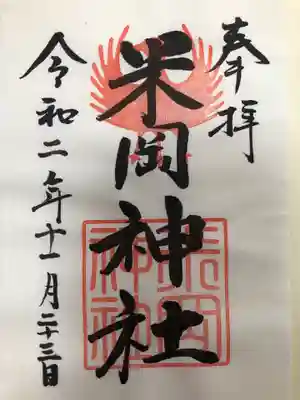 奉拝
米岡神社
令和二年十一月二十三日
米岡神社